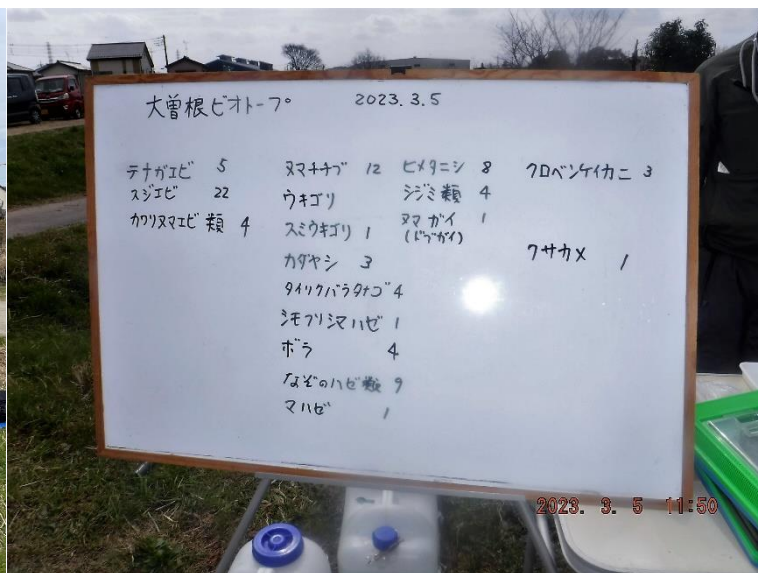 大曽根ビオトープ 2023.3.5
テナガエビ 5
スジエビ 22
カワリヌマエビ類 4
ヌマチチブ 12
ウキゴリ
スミウキゴリ 1
カダヤシ 3
タイリクバラタナゴ 4
シモフリシマハゼ 1
ボラ 4
なぞのハゼ類 9
マハゼ 1
ヒメタニシ 8
シジミ類 4
ヌマガイ 1
(ドブガイ)
クロベンケイカニ 3
クサカメ 1
2023. 3. 5 11:50